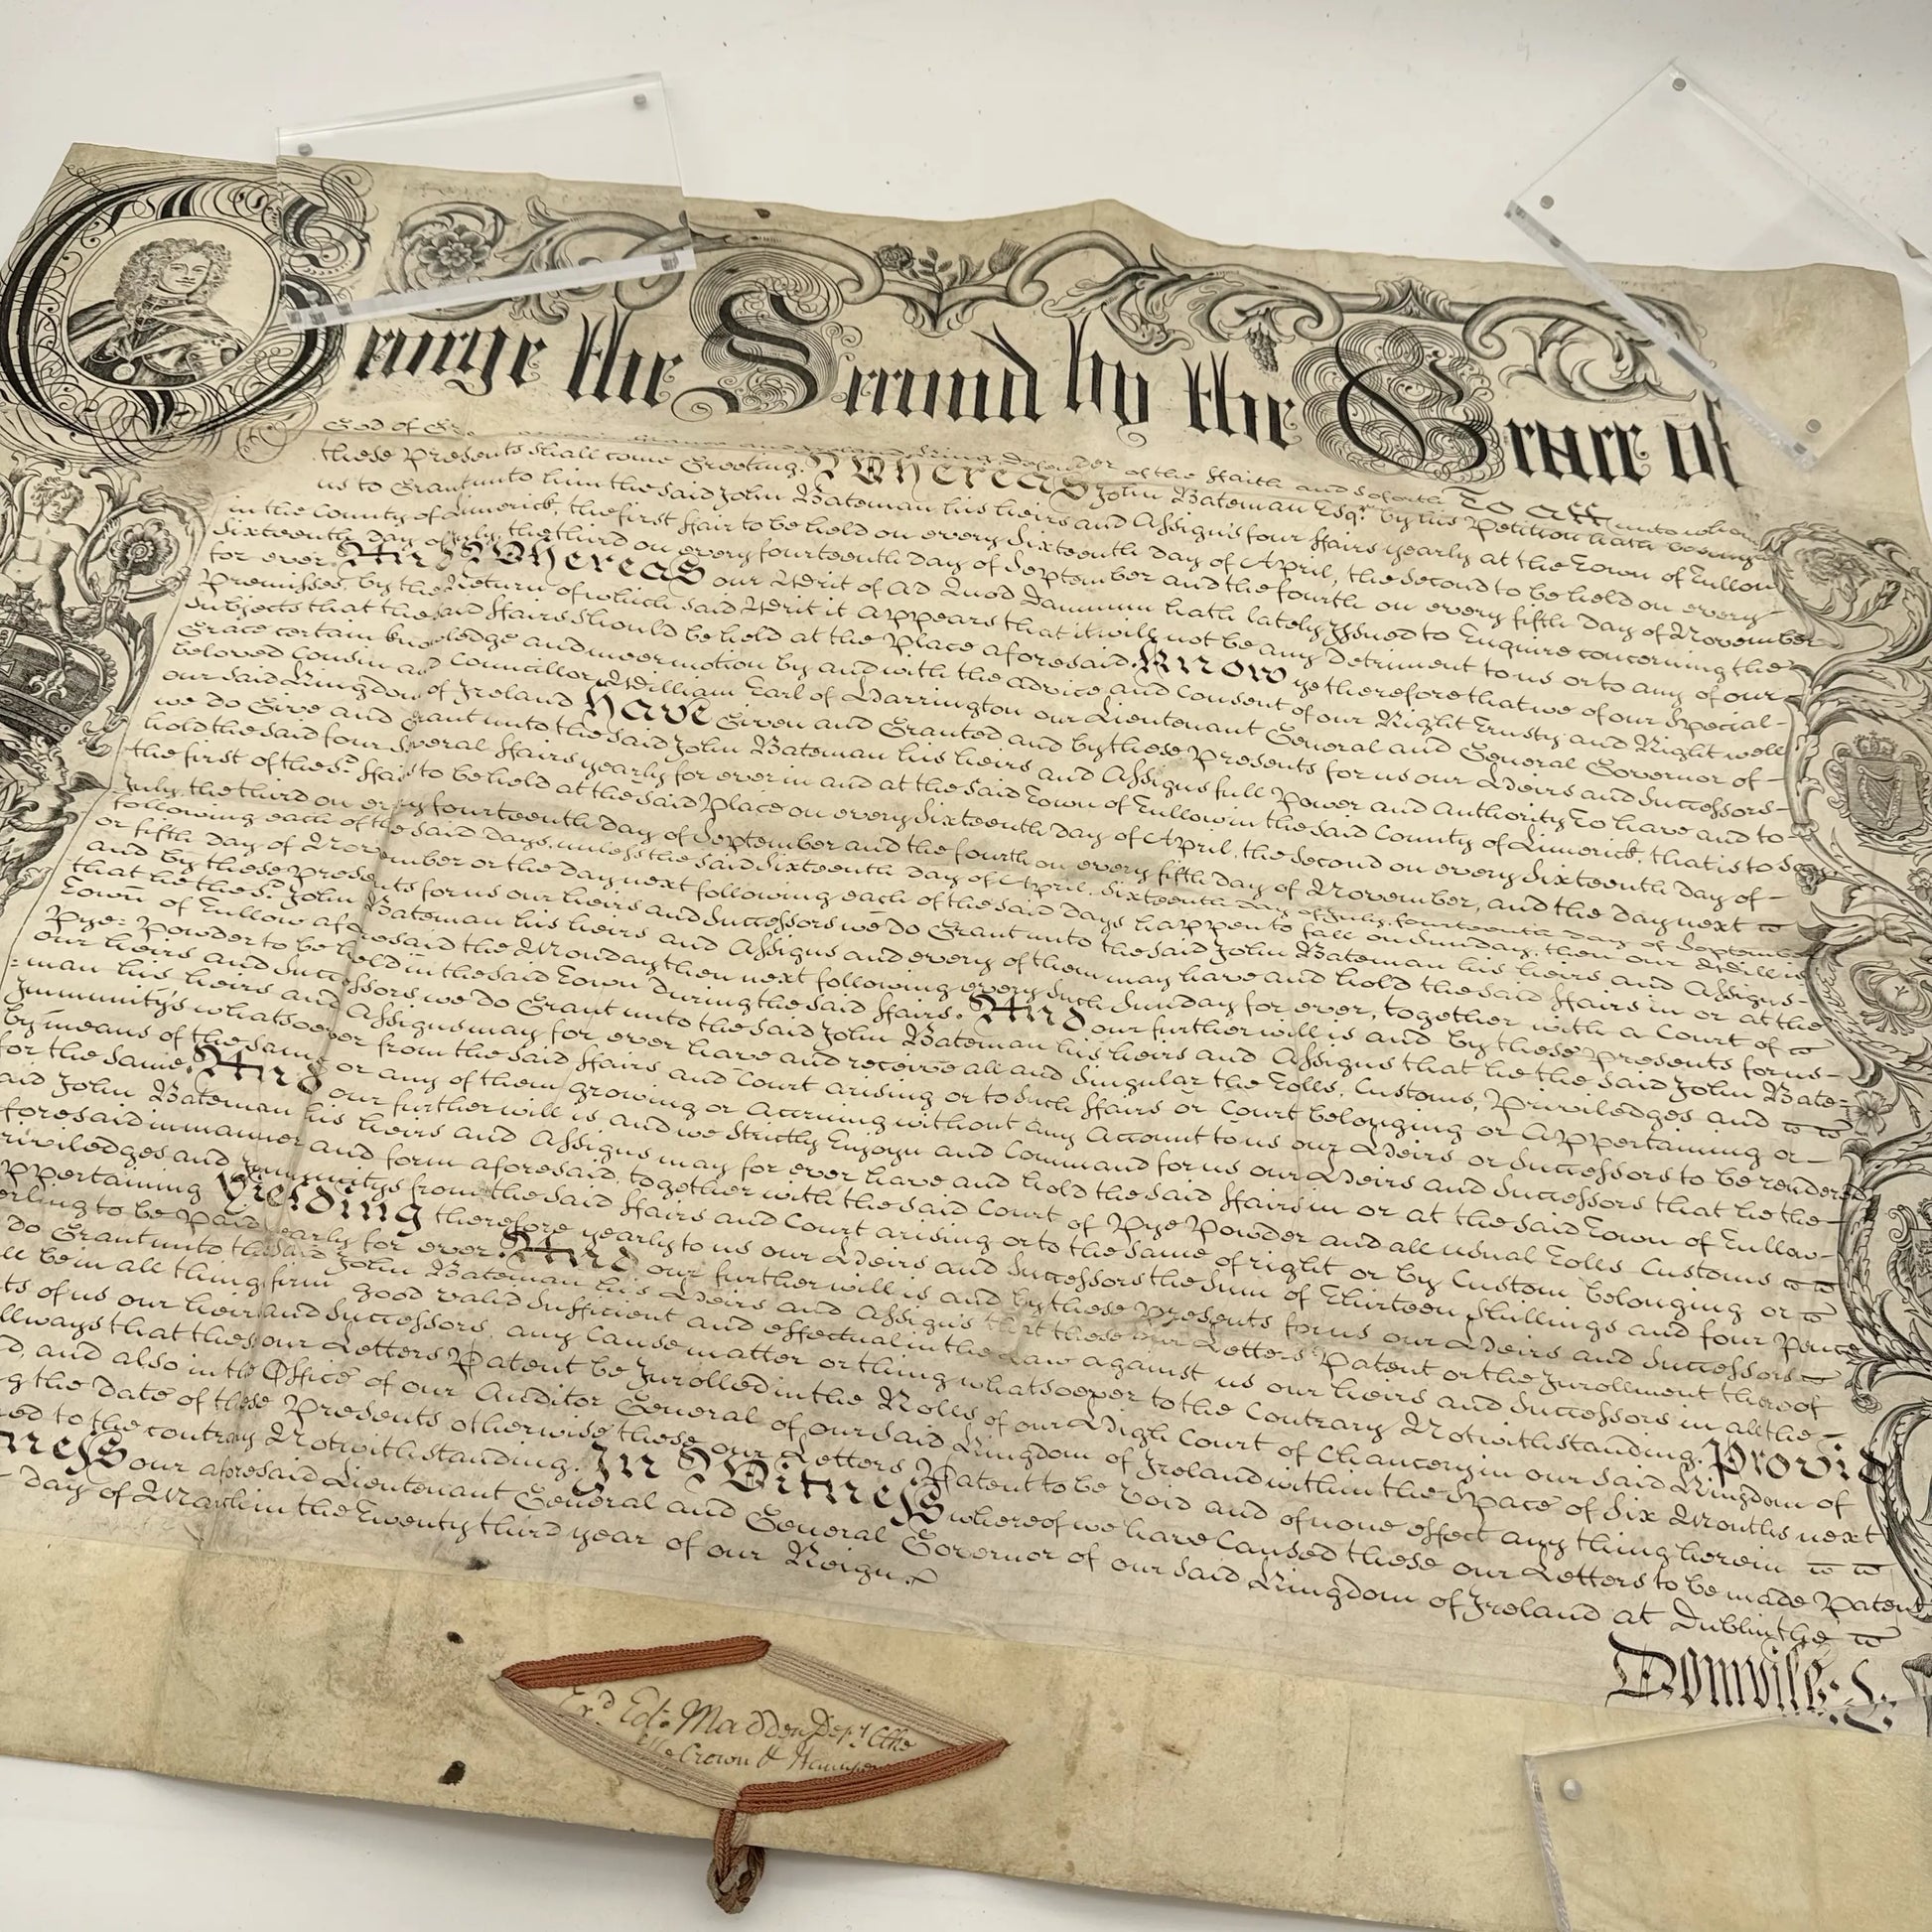 George the Second by the Grace of
God of Defender of the Faith and so forth To All unto whom
these Presents shall come Greeting. Whereas John Bateman Esqr. by his Petition hath besought
us to Grant unto him the said John Bateman his heirs and Assigns four ffairs yearly at the Town of Tullow
in the County of Limerick, the first ffair to be held on every Sixteenth day of April, the second to be held on every
Sixteenth day of July, the third on every fourteenth day of September and the fourth on every fifth day of November
for ever And Whereas our Writ of Ad Quod Damnum hath lately Issued to Enquire concerning the
Premisses, by the Return of which said Writ it Appears that it will not be any Detriment to us or to any of our
Subjects that the said ffairs should be held at the Place aforesaid. Know ye therefore that we of our Special
Grace certain knowledge and meer motion by and with the advice and Consent of our Right Trusty and Right well
beloved Cousin and Councillor William Earl of Harrington our Lieutenant General and General Governor of
our said Kingdom of Ireland Have Given and Granted and by these Presents for us our Heirs and Successors
we do Give and Grant unto the said John Bateman his heirs and Assigns full Power and Authority To have and to
hold the said four several ffairs yearly for ever in and at the said Town of Tullow in the said County of Limerick, that is to say,
the first of the sd. ffairs to be held at the said Place on every Sixteenth day of April, the second on every Sixteenth day of
July, the third on every fourteenth day of September and the fourth on every fifth day of November, and the day next
following each of the said days, unless the said Sixteenth day of April, Sixteenth day of July, fourteenth day of September
or fifth day of November or the day next following each of the said days happen to fall on Sunday, then our Will is
and by these presents for us our heirs and Successors we do Grant unto the said John Bateman his heirs and Assigns
that he the sd. John Bateman his heirs and Assigns and every of them may have and hold the said ffairs in or at the
Town of Tullow aforesaid the Monday then next following every such Sunday for ever, together with a Court of
Pye-Powder to be held in the said Town during the said ffairs. And our further will is and by these Presents for us
our heirs and Successors, we do Grant unto the said John Bateman his heirs and Assigns that he the said John Bate-
=man his heirs and Assigns may for ever have and receive all and Singular the Tolls, Customs, Priviledges and
Immunitys whatsoever from the said ffairs and Court arising or to such ffairs or Court belonging or Appertaining or
by means of the same or any of them growing or Accruing without any Account to us our Heirs or Successors to be rendered
for the same. And our further will is, and we Strictly Enjoyn and Command for us our Heirs and Successors that he the
said John Bateman his heirs and Assigns may for ever have and hold the said ffairs in or at the said Town of Tullow
aforesaid in manner and form aforesaid, together with the said Court of Pye Powder and all usual Tolls Customs
Priviledges and Immunitys from the said ffairs and Court arising or to the same of right or by Custom belonging or
Appertaining Yielding therefore yearly to us our Heirs and Successors the Sum of Thirteen Shillings and four Pence
Sterling to be Paid yearly for ever. And our further will is and by these Presents for us our Heirs and Successors
do Grant unto the said John Bateman his Heirs and Assigns that these our Letters Patent or the Inrollment thereof
shall be in all things firm good valid Sufficient and effectual in the Law against us our heirs and Successors in all the
Courts of us our heirs and Successors, any Cause matter or thing whatsoever to the Contrary Notwithstanding. Provided
allways that these our Letters Patent be Inrolled in the Rolls of our High Court of Chancery in our said Kingdom of
Ireland, and also in the Office of our Auditor General of our said Kingdom of Ireland within the Space of Six Months next
ensuing the Date of these Presents otherwise these our Letters Patent to be Void and of none effect any thing herein
contained to the contrary Notwithstanding. In Witness whereof we have Caused these our Letters to be made Patent
Witness our aforesaid Lieutenant General and General Governor of our said Kingdom of Ireland at Dublin the
day of March in the Twenty third year of our Reign.
Domvile.
Exd. Ed. Madden Depy. Clke
of the Crown & Hanaper